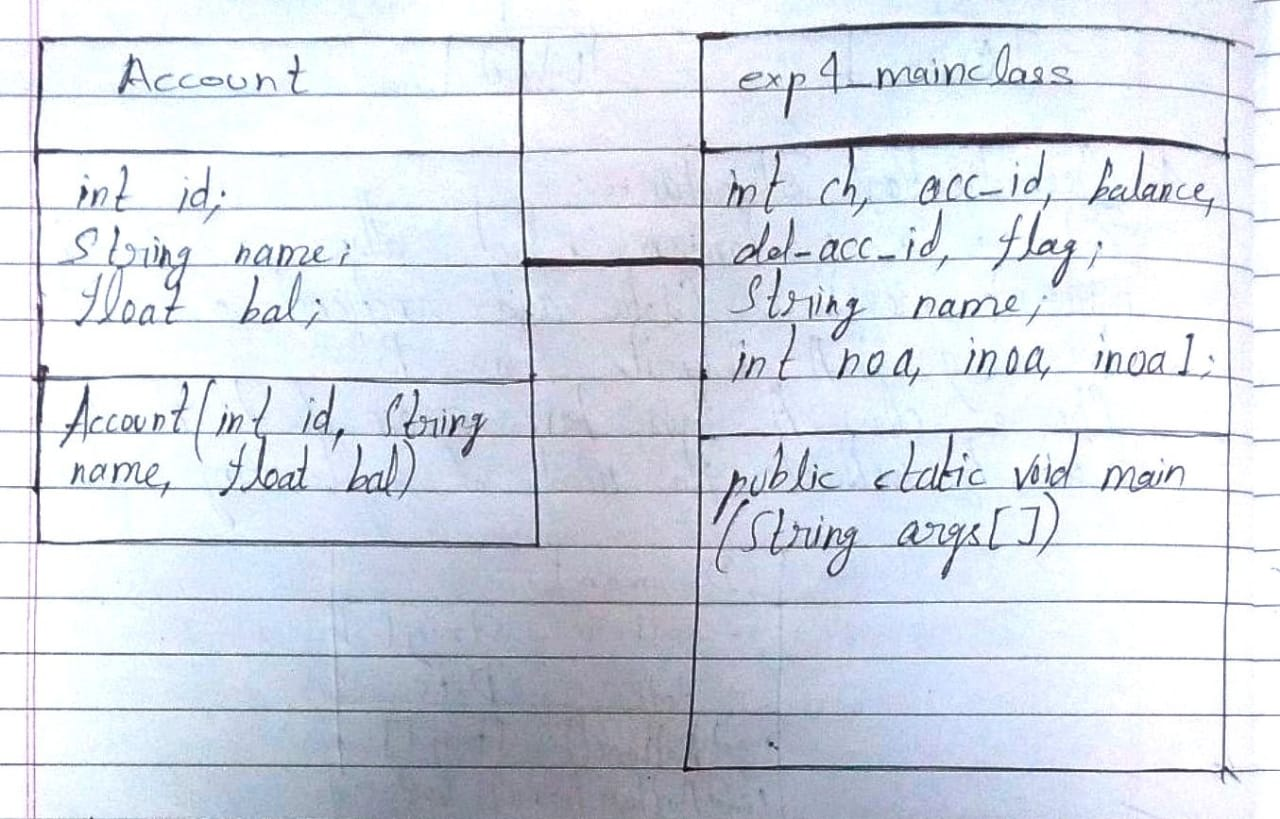 Account
int id;
String name;
float bal;
Account(int id, String
name, float bal)
exp4_mainclass
int ch, acc_id, balance,
dd-acc_id, flag;
String name;
int noa, inoa, inoa1;
public static void main
(String args[])